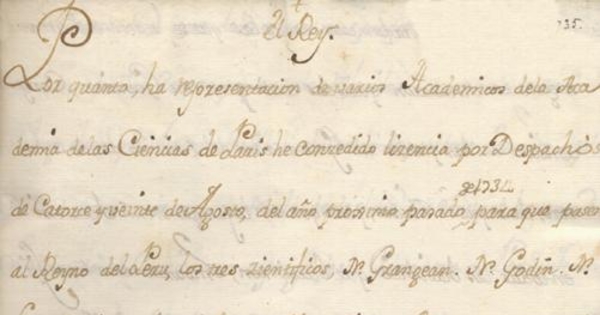 El Rey.
135.
Por quánto, ha representacion de varios Academicos dela Aca
demia delas Ciencias de Paris he concedido lizencia por Despachos
de 1734
de Catorce y veinte de Agosto, del año proximo pasado, para que pasen
al Reyno del Peru, los tres zientificos, Nⁿ. Grangean. Nⁿ. Godin. Nⁿ.